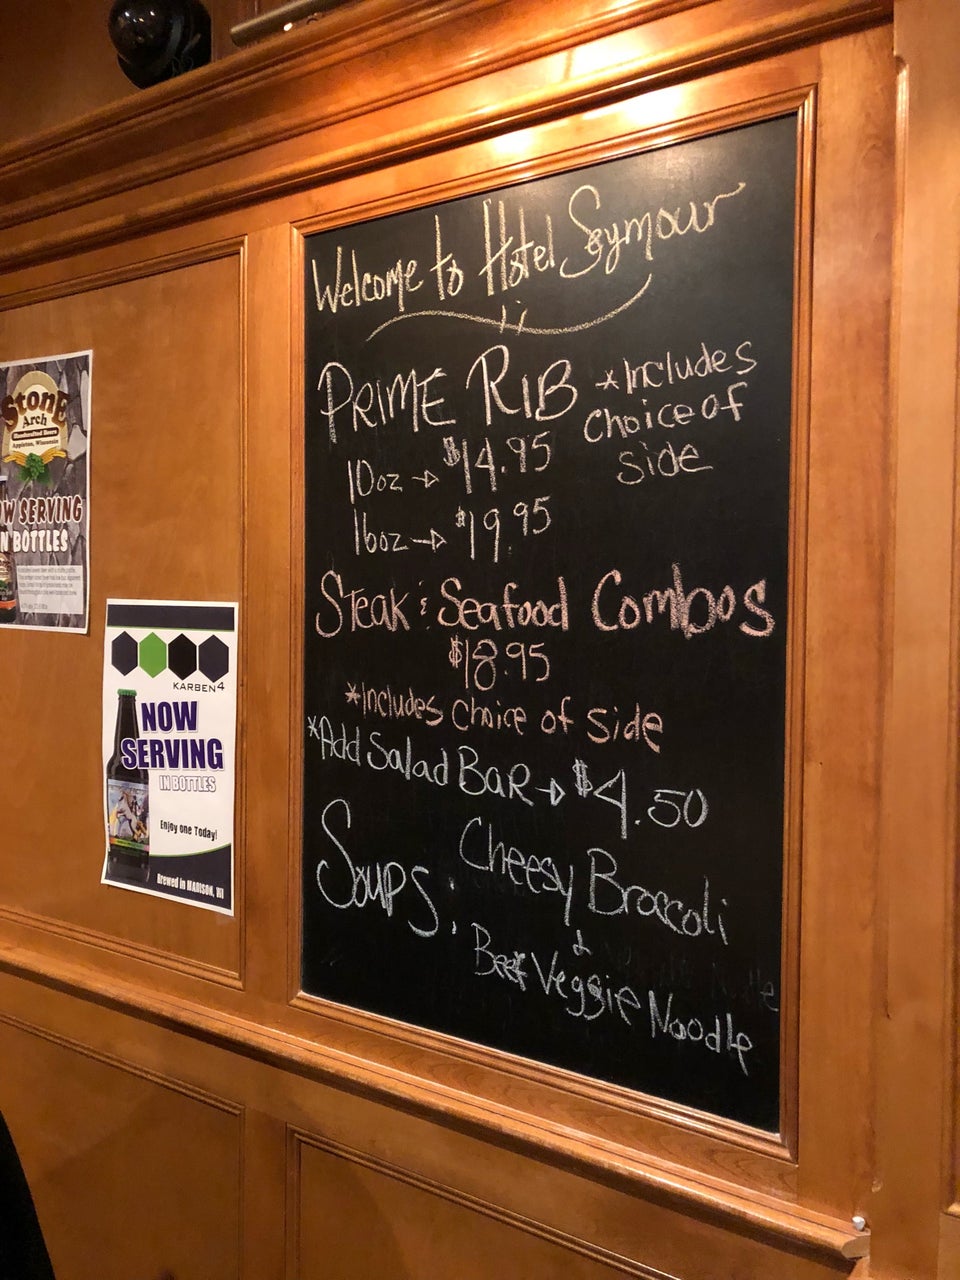 Welcome to Hotel Seymour
PRIME RIB
*Includes
Choice of
side
10oz → $14.95
16oz → $19.95
Steak & Seafood Combos
$18.95
*Includes choice of side
*Add Salad Bar → $4.50
Soups:
Cheesy Broccoli
&
Beef Veggie Noodle
Stone
Arch
Handcrafted Beers
Appleton, Wisconsin
W SERVING
N BOTTLES
KARBEN4
NOW
SERVING
IN BOTTLES
Enjoy one Today!
Brewed in MADISON, WI